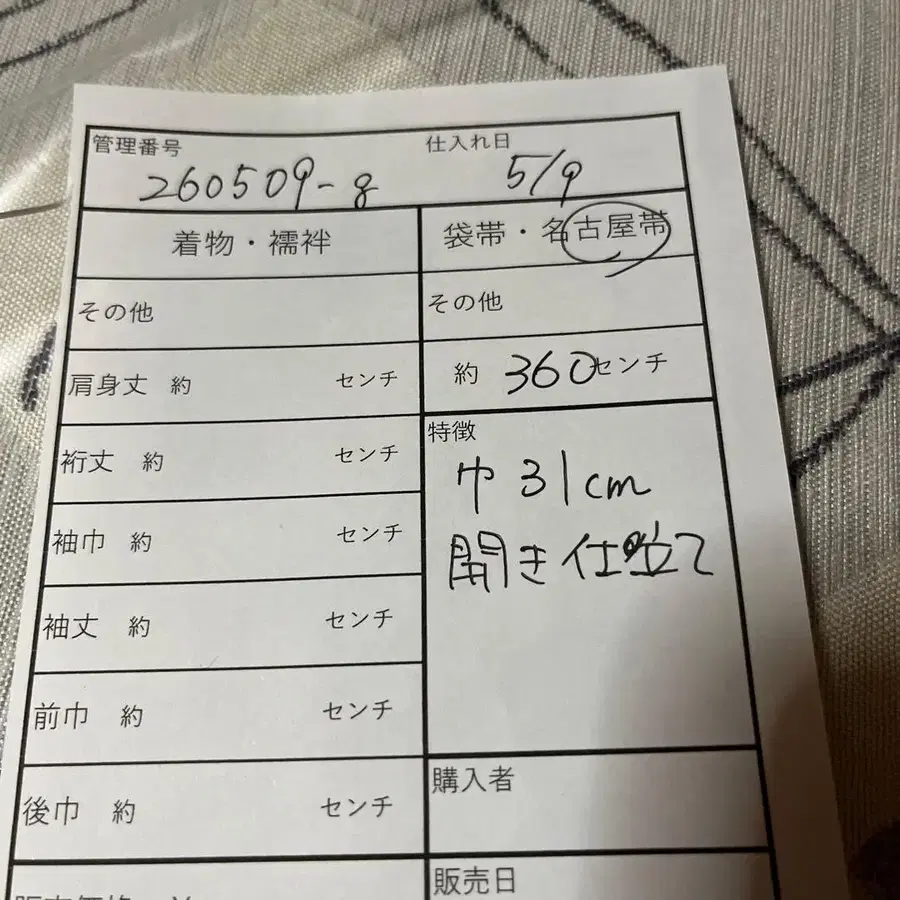 管理番号 仕入れ日
260509-8 5/9
着物・襦袢 袋帯・名古屋帯
その他 その他
肩身丈 約 センチ 約 360センチ
裄丈 約 センチ 特徴
巾31cm
袖巾 約 センチ 開き仕立て
袖丈 約 センチ
前巾 約 センチ
後巾 約 センチ 購入者
販売日